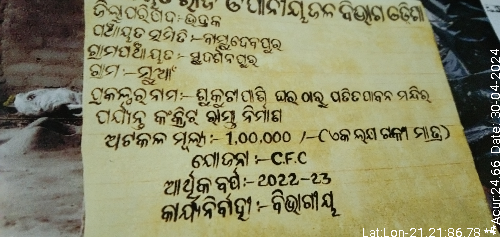 ଓ ପାନୀୟ ଜଳ ବିଭାଗ ଓଡିଶା
ଜିଲ୍ଲା ପରିଷଦ :- ଭଦ୍ରକ
ପଞ୍ଚାୟତ ସମିତି :- ବାସୁଦେବପୁର
ଗ୍ରାମପଞ୍ଚାୟତ :- ସୁଦର୍ଶନପୁର
ଗ୍ରାମ :-
ପ୍ରକଳ୍ପର ନାମ :- ଘର ଠାରୁ ପତିତପାବନ ମନ୍ଦିର
ପର୍ଯ୍ୟନ୍ତ କଂକ୍ରିଟ ରାସ୍ତା ନିର୍ମାଣ
ଅଟକଳ ମୂଲ୍ୟ :- 1,00,000 /- (ଏକ ଲକ୍ଷ ଟଙ୍କା ମାତ୍ର)
ଯୋଜନା :- C.F.C
ଆର୍ଥିକ ବର୍ଷ :- 2022-23
କାର୍ଯ୍ୟନିର୍ବାହୀ :- ବିଭାଗୀୟ
Lat:Lon-21.21:86.78 ** Acur24.66 Date: 30-04-2024